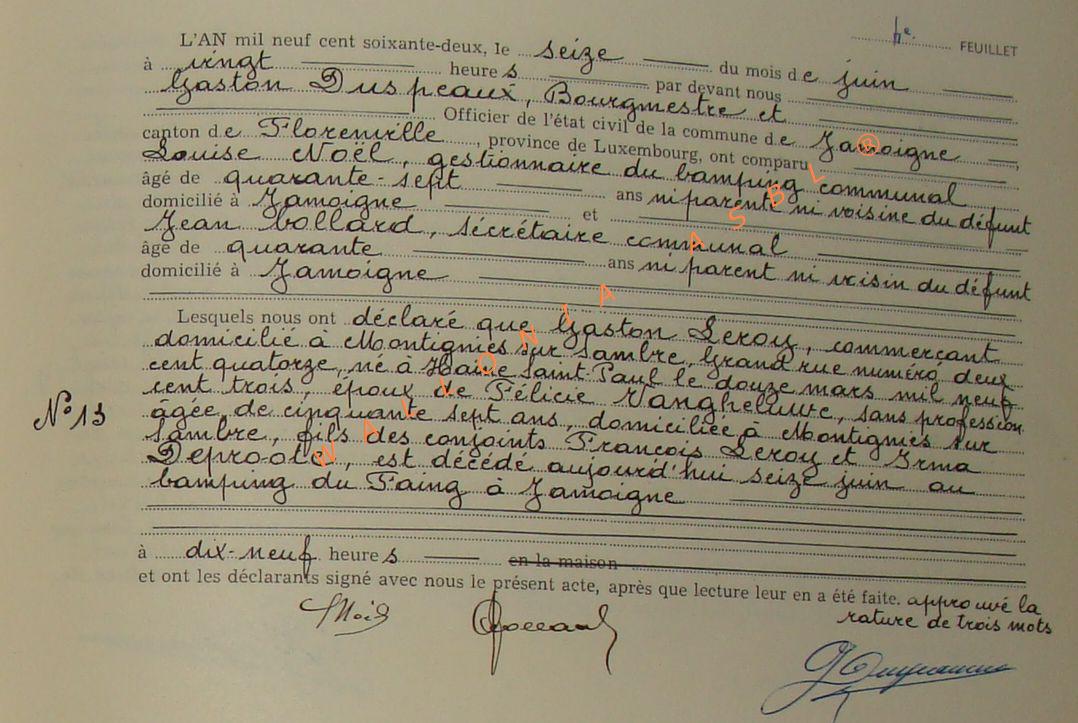 6e. FEUILLET
L'AN mil neuf cent soixante-deux, le seize du mois de juin
à vingt heures par devant nous
Gaston Duspeaux, Bourgmestre et
Officier de l'état civil de la commune de Jamoigne,
canton de Florenville, province de Luxembourg, ont comparu
Louise Noël, gestionnaire du Camping communal
âgé de quarante-sept ans ni parente ni voisine du défunt
domicilié à Jamoigne et
Jean Collard, secrétaire communal
âge de quarante ans ni parent ni voisin du défunt
domicilié à Jamoigne
Lesquels nous ont déclaré que Gaston Leroy, commerçant
domicilié à Montignies sur Sambre, Grand rue numéro deux
cent quatorze, né à Haine Saint Paul le douze mars mil neuf
cent trois, époux de Félicie Vangheluwe, sans profession
N° 13
âgée de cinquante sept ans, domiciliée à Montignies sur
Sambre, fils des conjoints François Leroy et Irma
est décédé aujourd'hui seize juin au
Camping du Faing à Jamoigne
à dix-neuf heures en la maison
et ont les déclarants signé avec nous le présent acte, après que lecture leur en a été faite. approuvé la
rature de trois mots
LNoël Collard
WALLONIA ASBL ®